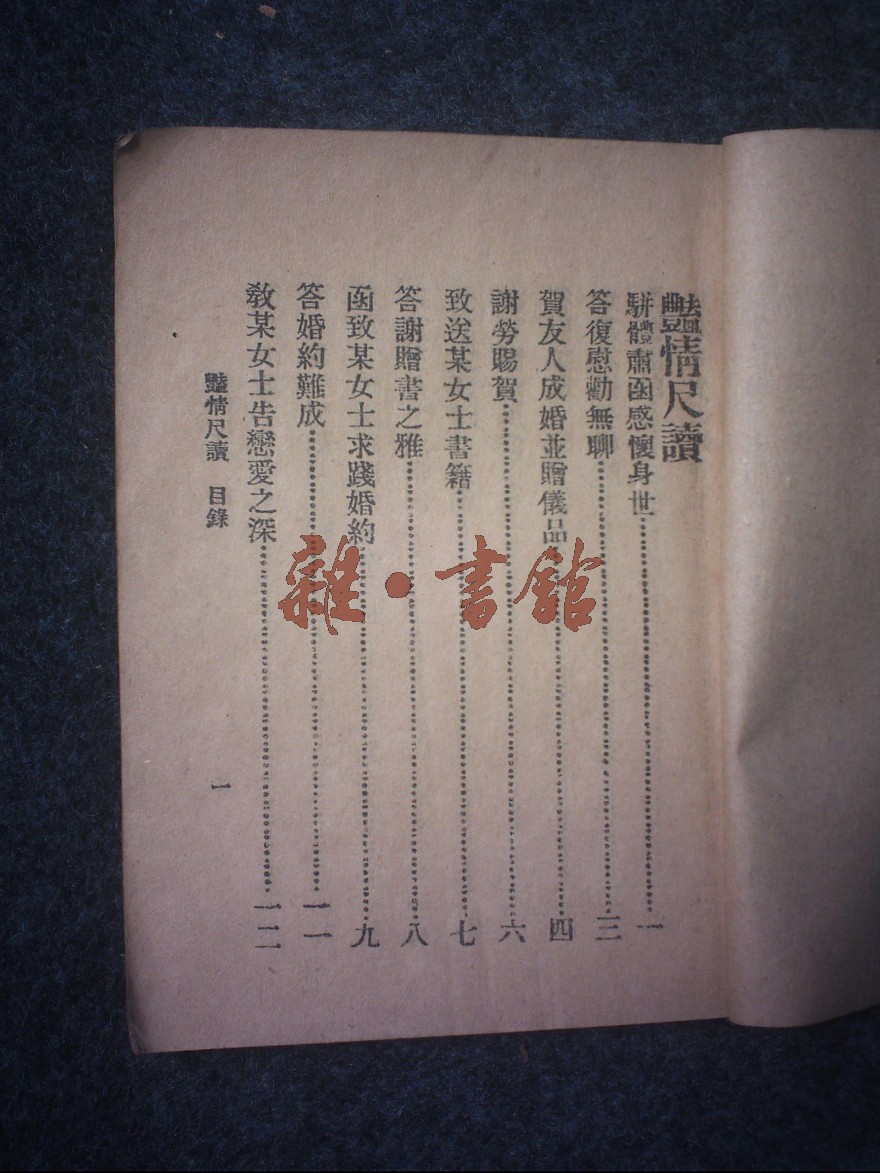 豔情尺讀
駢體肅函感懷身世……一
答復慰勸無聊……三
賀友人成婚並贈儀品……四
謝勞賜賀……六
致送某女士書籍……七
答謝贈書之雅……八
函致某女士求踐婚約……九
答婚約難成……一一
敎某女士告戀愛之深……一二
豔情尺讀 目錄
一
雜·書館